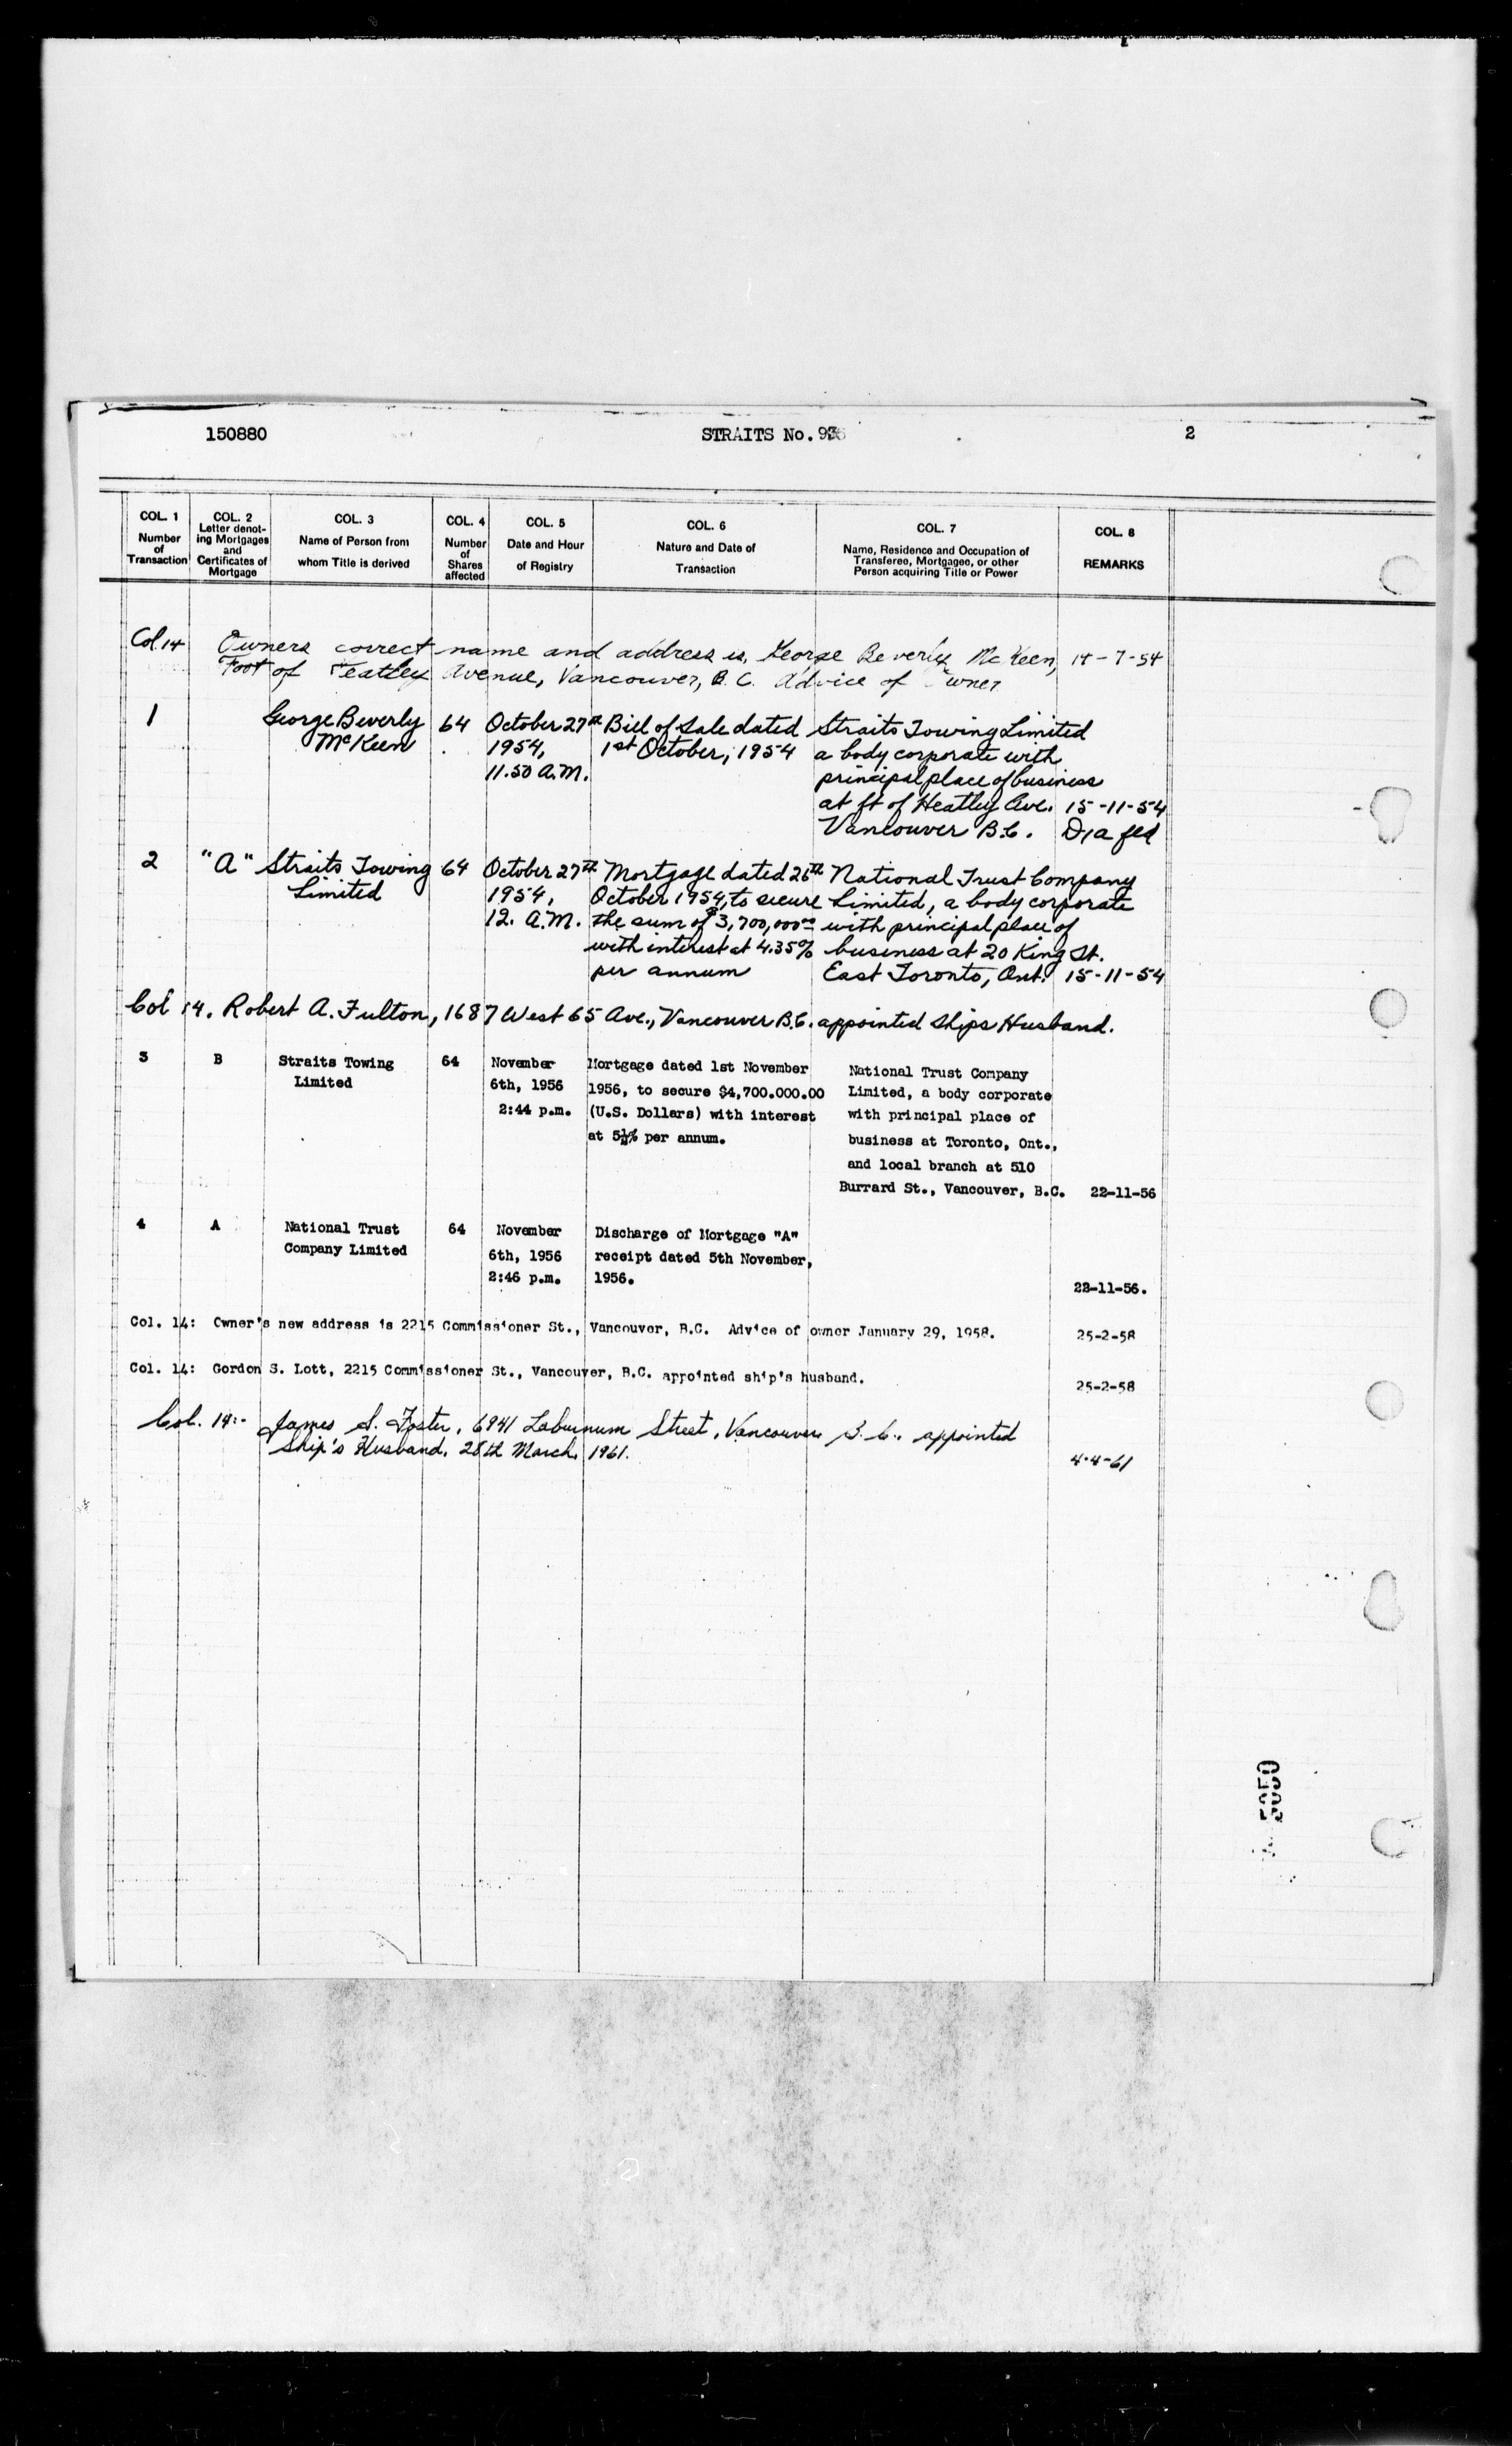 150880 STRAITS No. 936 2
COL. 1 Number of Transaction
COL. 2 Letter denoting Mortgages and Certificates of Mortgage
COL. 3 Name of Person from whom Title is derived
COL. 4 Number of Shares affected
COL. 5 Date and Hour of Registry
COL. 6 Nature and Date of Transaction
COL. 7 Name, Residence and Occupation of Transferee, Mortgagee, or other Person acquiring Title or Power
COL. 8 REMARKS
Col 14 Owners correct name and address is, George Beverly McKeen, 14-7-54
Foot of Heatley Avenue, Vancouver, B.C. Advice of Owner
1 George Beverly 64 October 27th Bill of Sale dated Straits Towing Limited
McKeen 1954, 1st October, 1954 a body corporate with
11.50 A.M. principal place of business
at ft of Heatley Ave. 15-11-54
Vancouver B.C.
2 "A" Straits Towing 64 October 27th Mortgage dated 26th National Trust Company
Limited 1954, October 1954, to secure Limited, a body corporate
12. A.M. the sum of $3,700,000.00 with principal place of
with interest at 4.35% business at 20 King St.
per annum East Toronto, Ont. 15-11-54
Col 14. Robert A. Fulton, 1687 West 65 Ave., Vancouver B.C. appointed Ships Husband.
3 B Straits Towing 64 November Mortgage dated 1st November National Trust Company
Limited 6th, 1956 1956, to secure $4,700.000.00 Limited, a body corporate
2:44 p.m. (U.S. Dollars) with interest with principal place of
at 5½% per annum. business at Toronto, Ont.,
and local branch at 510
Burrard St., Vancouver, B.C. 22-11-56
4 A National Trust 64 November Discharge of Mortgage "A"
Company Limited 6th, 1956 receipt dated 5th November,
2:46 p.m. 1956.
22-11-56.
Col. 14: Owner's new address is 2215 Commissioner St., Vancouver, B.C. Advice of owner January 29, 1958. 25-2-58
Col. 14: Gordon S. Lott, 2215 Commissioner St., Vancouver, B.C. appointed ship's husband. 25-2-58
Col. 14:- James S. Foster, 6941 Laburnum Street, Vancouver B.C., appointed
Ship's Husband, 28th March, 1961. 4-4-61
5050